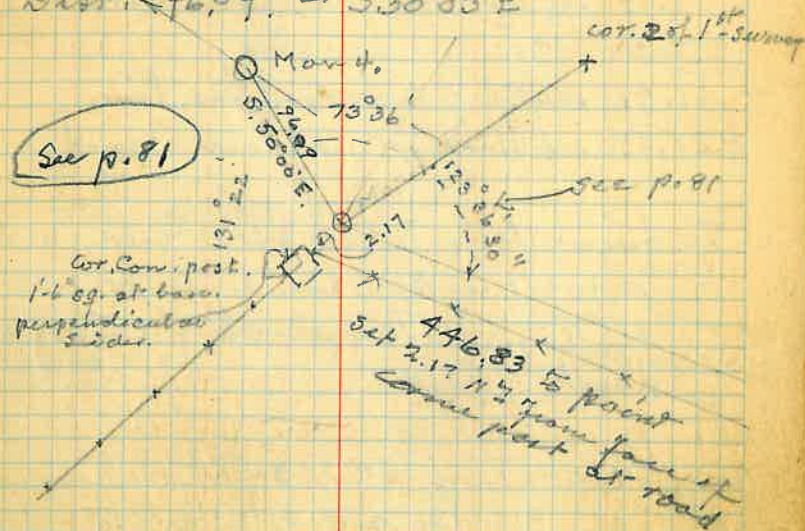 Dist. 96.89. — S 50°05'E
cor. 2 of 1st survey
Mon 4.
73°36'
See p. 81
96.89
S. 50°00'E.
131°22
123° 36' 30"
see p. 81
2.17
Cor. Con. post.
1-6" sq. at base.
perpendicular
sides.
446.83 to point
Set 2.17 from face of
corner post
at road